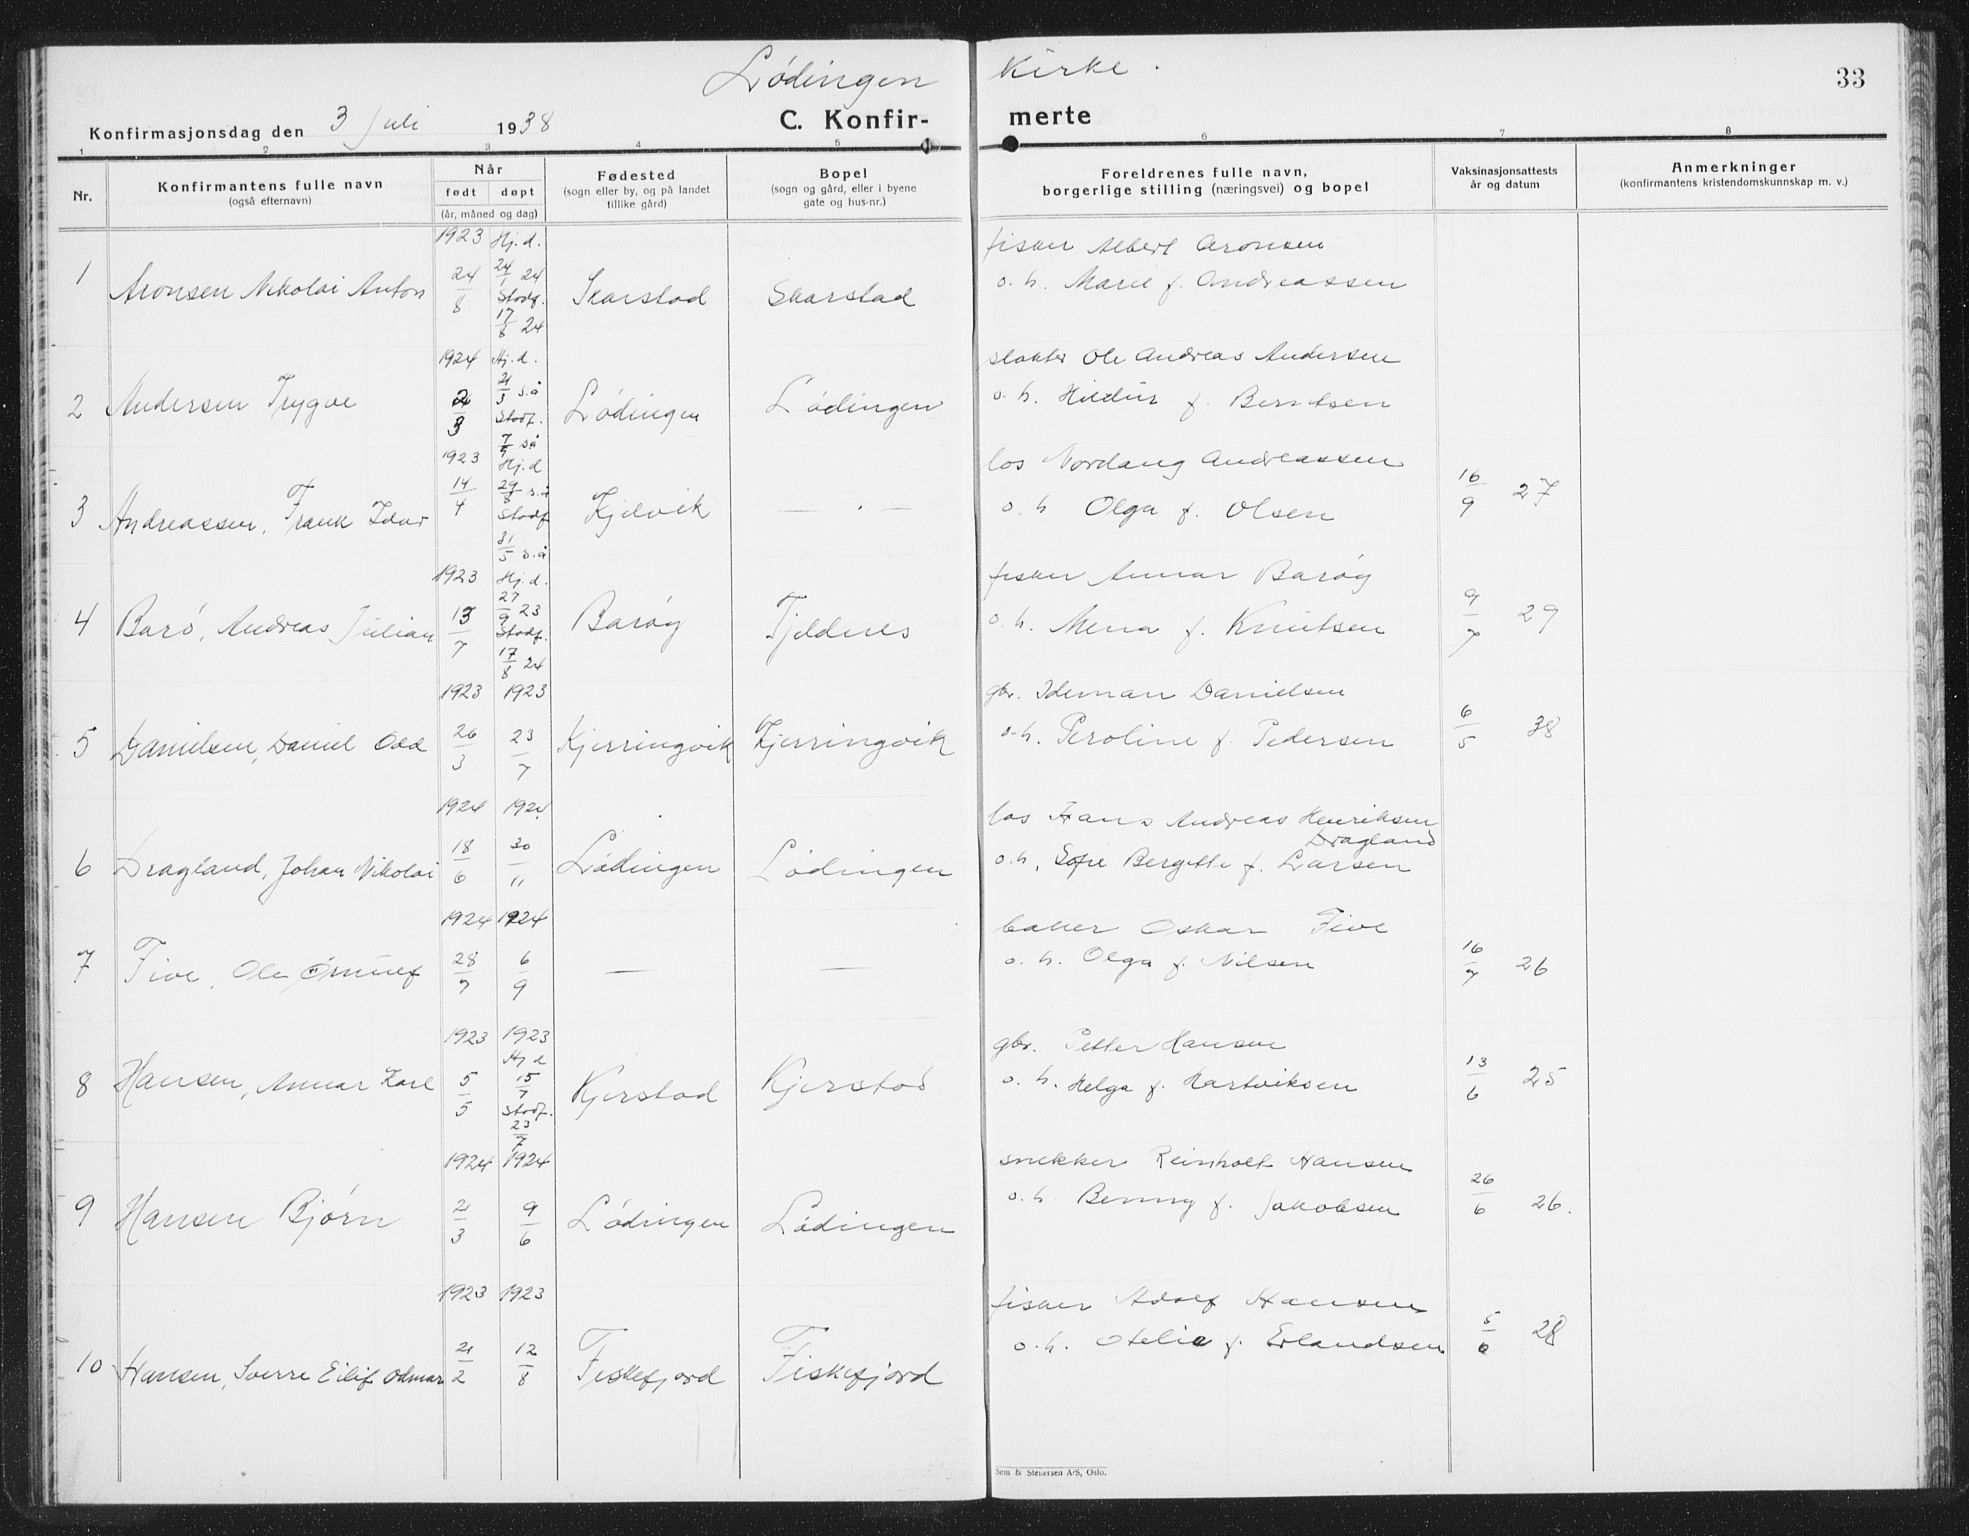 Lødingen Kirke.
33
Konfirmasjonsdag den 3 Juli 1938
C. Konfirmerte
1 2 3 4 5 6 7 8
Nr.
Konfirmantens fulle navn
(også efternavn)
Når
født døpt
(år, måned og dag)
Fødested
(sogn eller by, og på landet
tillike gård)
Bopel
(sogn og gård, eller i byene
gate og hus-nr.)
Foreldrenes fulle navn,
borgerlige stilling (næringsvei) og bopel
Vaksinasjonsattests
år og datum
Anmerkninger
(konfirmantens kristendomskunnskap m. v.)
1923 Hj. d. fisker Albert Aronsen
1 Aronsen Nikolai Anton 24/8 24/1 24 Stadf. 17/8 24 Skarstad Skarstad o. h. Marie f. Andreassen
1924 Hj. d. slakter Ole Andreas Andersen
2 Andersen Trygve 2/3 21/3 s.å Stadf. 7/9 så Lødingen Lødingen o. h. Hildur f. Berntsen
1923 Hj. d los Nordang Andreassen
3 Andreassen, Frank Idar 14/4 29/8 s.å Stadf 31/5 s.å Kjelvik — " — o. h Olga f. Olsen 16/9 27
1923 Hj. d. fisker Annar Barøy
4 Barø, Andreas Julian 13/7 27/9 23 Stadf. 17/8 24 Barøy Tjeldnes o. h. Mena f. Knutsen 9/7 29
1923 1923 gbr. Ideman Danielsen
5 Danielsen, Daniel Odd 26/3 23/7 Kjerringvik Kjerringvik o. h. Peroline f. Pedersen 6/5 38
1924 1924 los Hans Andreas Henriksen
Dragland
6 Dragland, Johan Nikolai 18/6 30/11 Lødingen Lødingen o. h. Sofie Bergitte f. Larsen
1924 1924 baker Oskar Five
7 Five, Ole Ørnulf 28/7 6/9 — — o. h. Olga f. Nilsen 16/7 26
1923 1923 gbr. Petter Hansen
8 Hansen, Annar Kare 5/5 Hj d 15/7 Stadf. 23/7 Kjerstad Kjerstad o. h. Helga f. Hartviksen 13/6 25
1924 1924 snekker Reinholt Hansen
9 Hansen Bjørn 21/3 9/6 Lødingen Lødingen o. h. Benny f. Jakobsen 26/6 26.
1923 1923 fisker Adolf Hansen
10 Hansen, Sverre Eilif Odmar 21/2 12/8 Fiskefjord Fiskefjord o. h. Otelie f. Erlandsen 5/6 28
Sem & Stenersen A/S, Oslo.